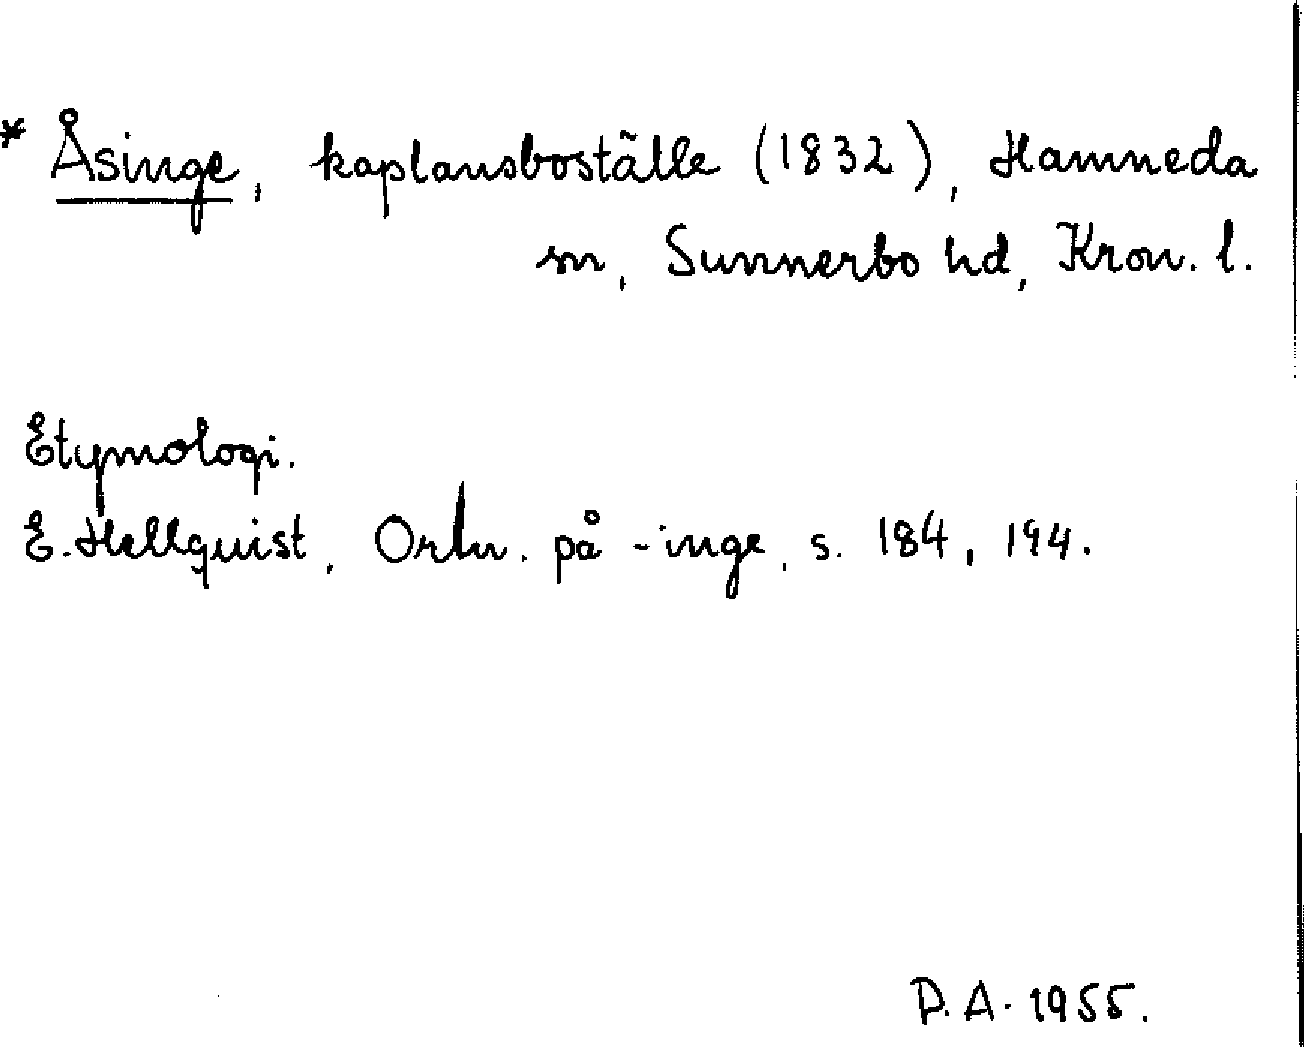 * Åsinge, kaplansboställe (1832), Hamneda
sn, Sunnerbo hd, Kron. l.
Etymologi.
E. Hellquist, Ortn. på -inge, s. 184, 194.
P.A. 1955.